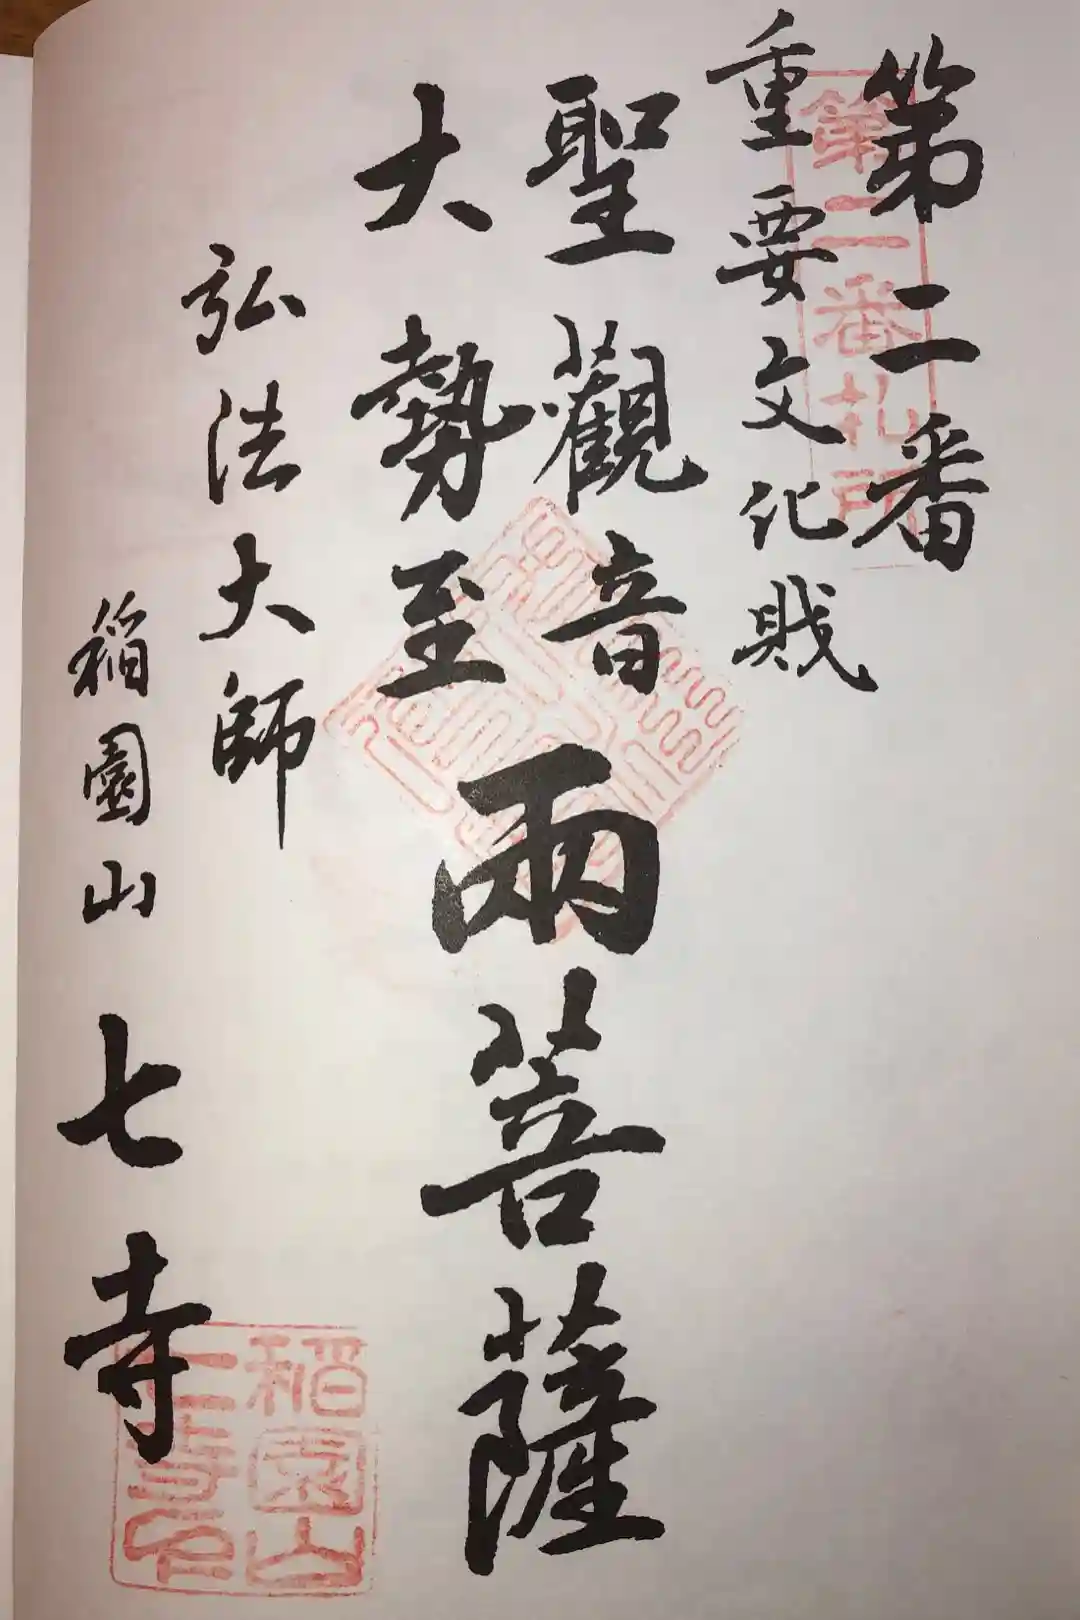 第二番
重要文化財
聖觀音
大勢至
兩菩薩
弘法大師
稲園山
七寺
第二番札所
稲園山
七寺印